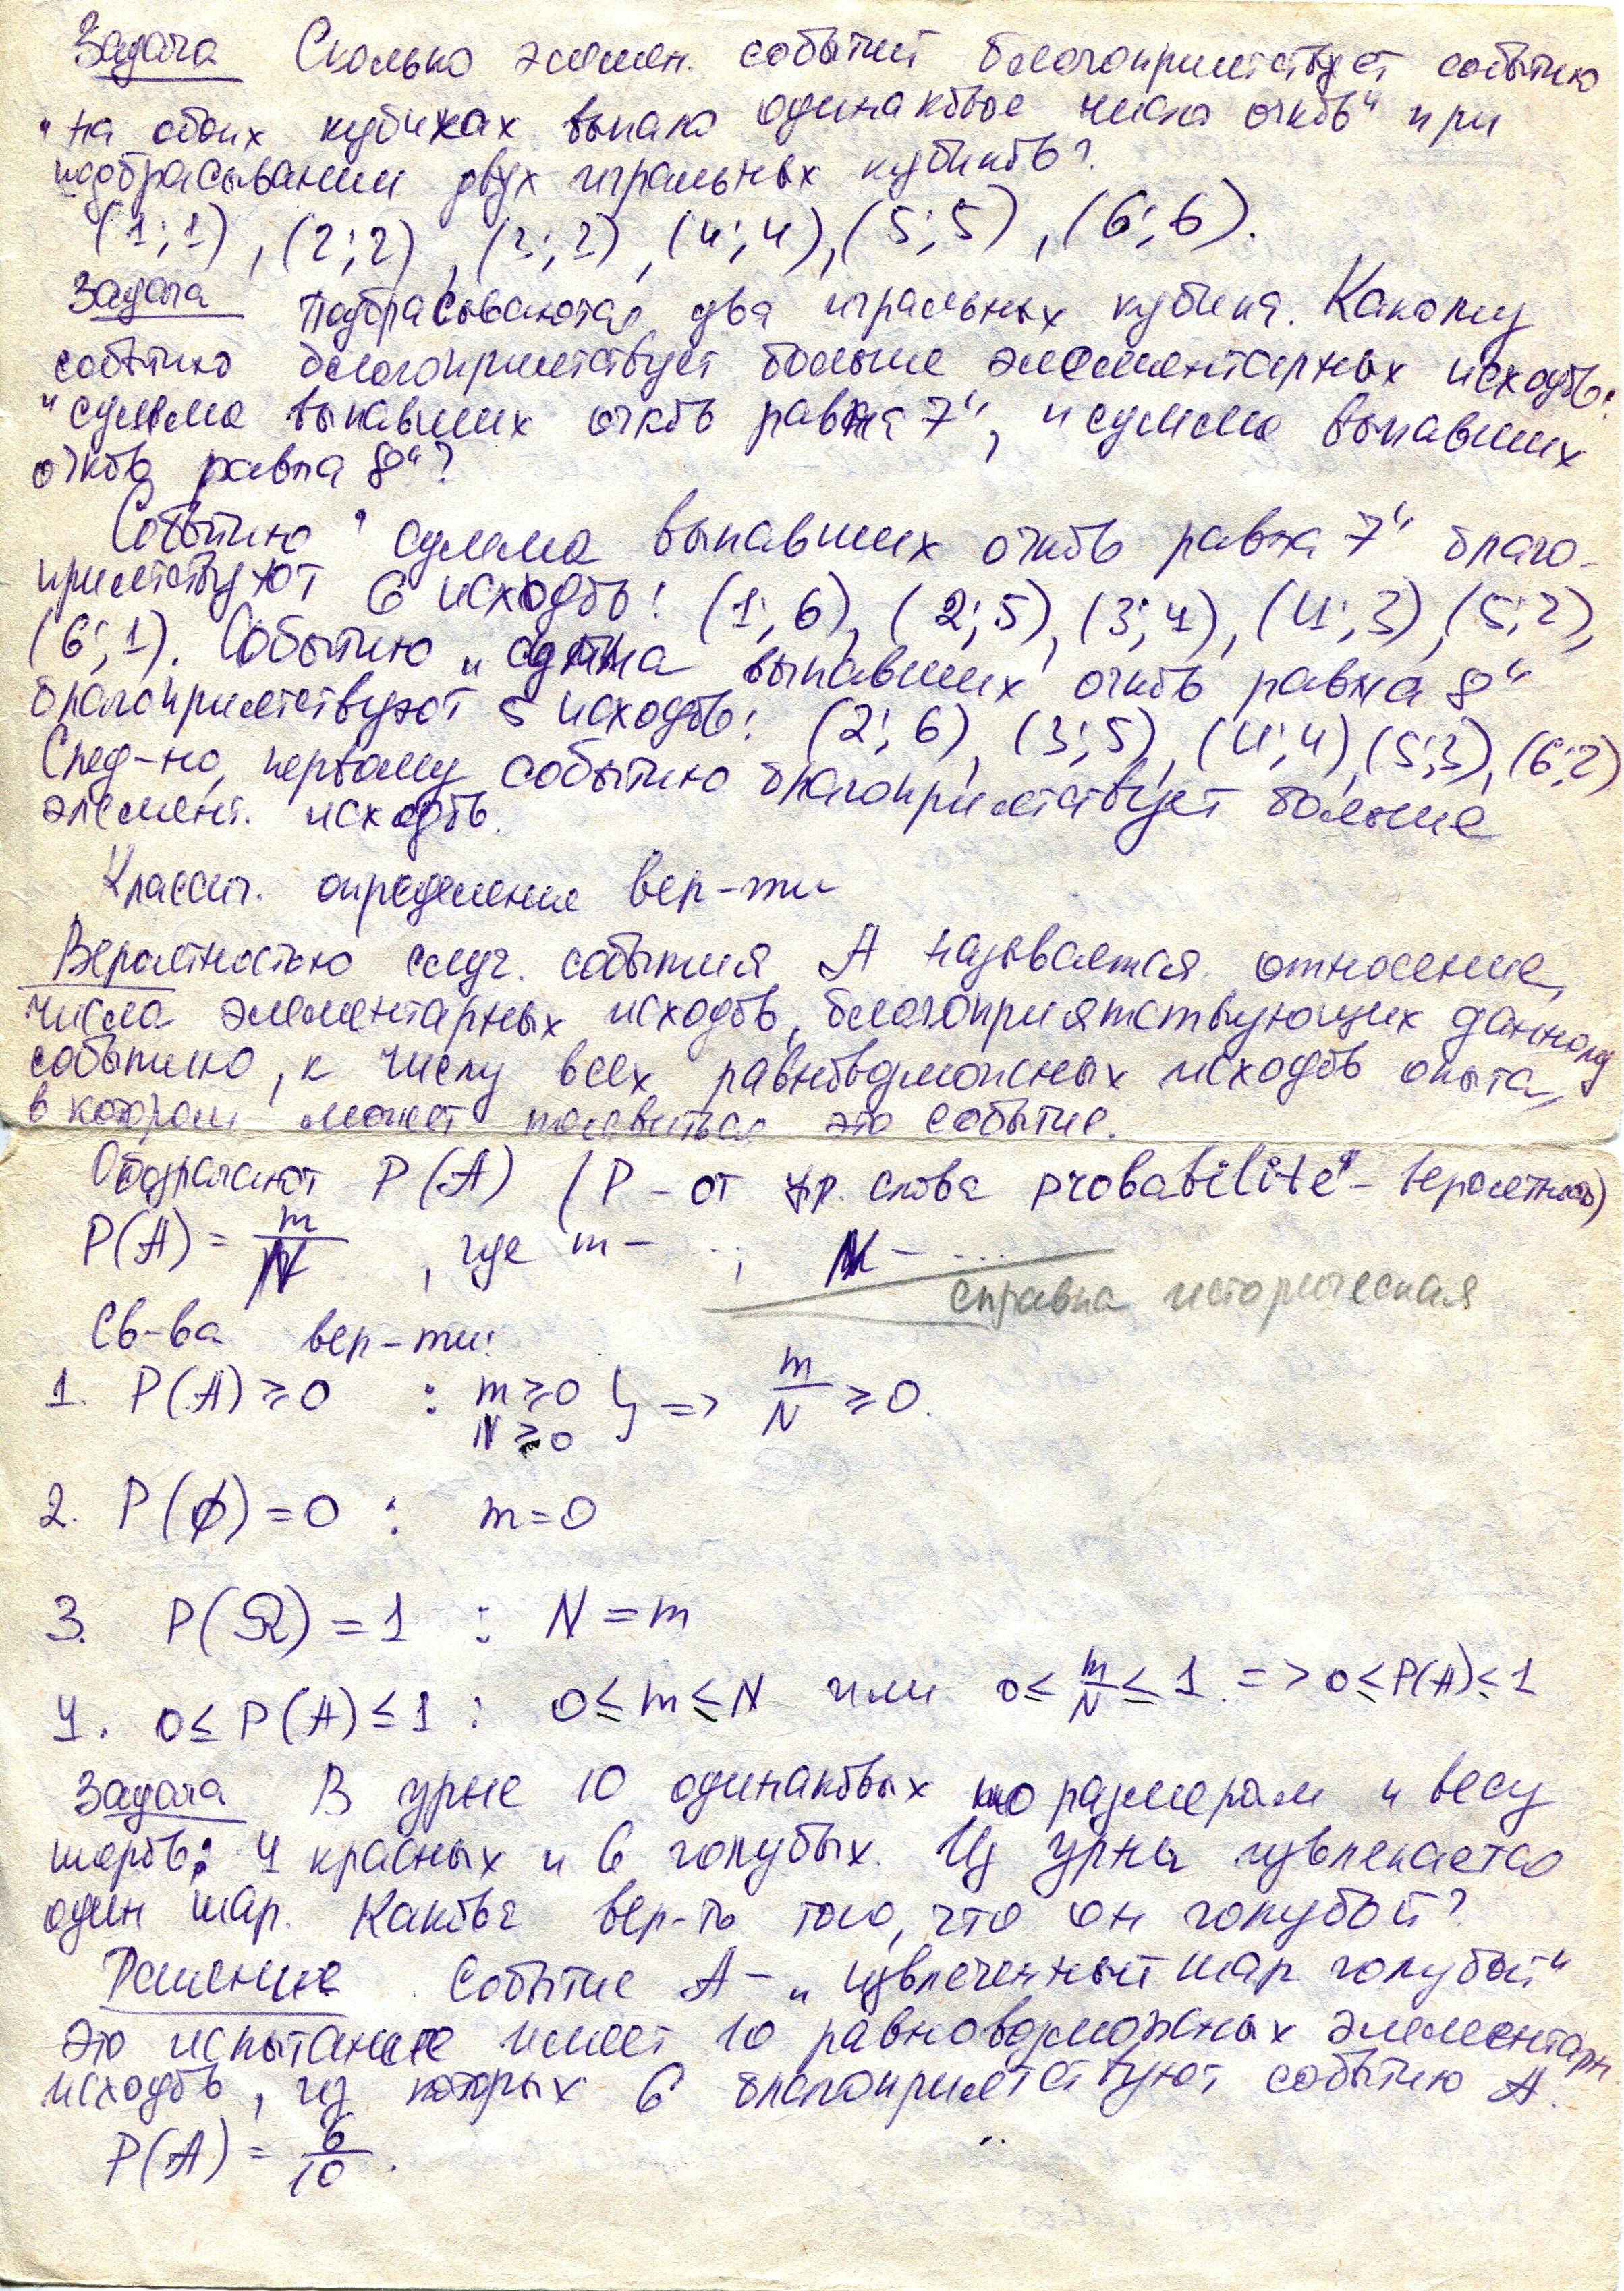 Задача Сколько элемен. событий благоприятствует событию
"на обоих кубиках выпало одинаковое число очков" при
подбрасывании двух игральных кубиков?
(1;1), (2;2), (3;3), (4;4), (5;5), (6;6).
Задача Подбрасываются два игральных кубика. Какому
событию благоприятствует больше элементарных исходов:
"сумма выпавших очков равна 7", "сумма выпавших
очков равна 8"?
Событию "сумма выпавших очков равна 7" благо-
приятствуют 6 исходов: (1;6), (2;5), (3;4), (4;3), (5;2),
(6;1). Событию "сумма выпавших очков равна 8"
благоприятствуют 5 исходов: (2;6), (3;5), (4;4), (5;3), (6;2)
След-но, первому событию благоприятствует больше
элемент. исходов.
Классич. определение вер-ти
Вероятностью случ. события A называется отношение
числа элементарных исходов, благоприятствующих данному
событию, к числу всех равновозможных исходов опыта,
в котором может появиться это событие.
Обозначают P(A) (P - от фр. слова probabilite" - вероятность)
P(A) = m/N, где m - ...; N - ...
справка историческая
Св-ва вер-ти:
1. P(A) ≥ 0 : m ≥ 0 } => m/N ≥ 0.
N ≥ 0
2. P(∅) = 0 : m = 0
3. P(Ω) = 1 : N = m
4. 0 ≤ P(A) ≤ 1 : 0 ≤ m ≤ N или 0 ≤ m/N ≤ 1. => 0 ≤ P(A) ≤ 1
Задача В урне 10 одинаковых по размерам и весу
шаров: 4 красных и 6 голубых. Из урны извлекается
один шар. Какова вер-ть того, что он голубой?
Решение. Событие A - "извлеченный шар голубой"
Это испытание имеет 10 равновозможных элементарн
исходов, из которых 6 благоприятствуют событию A.
P(A) = 6/10.